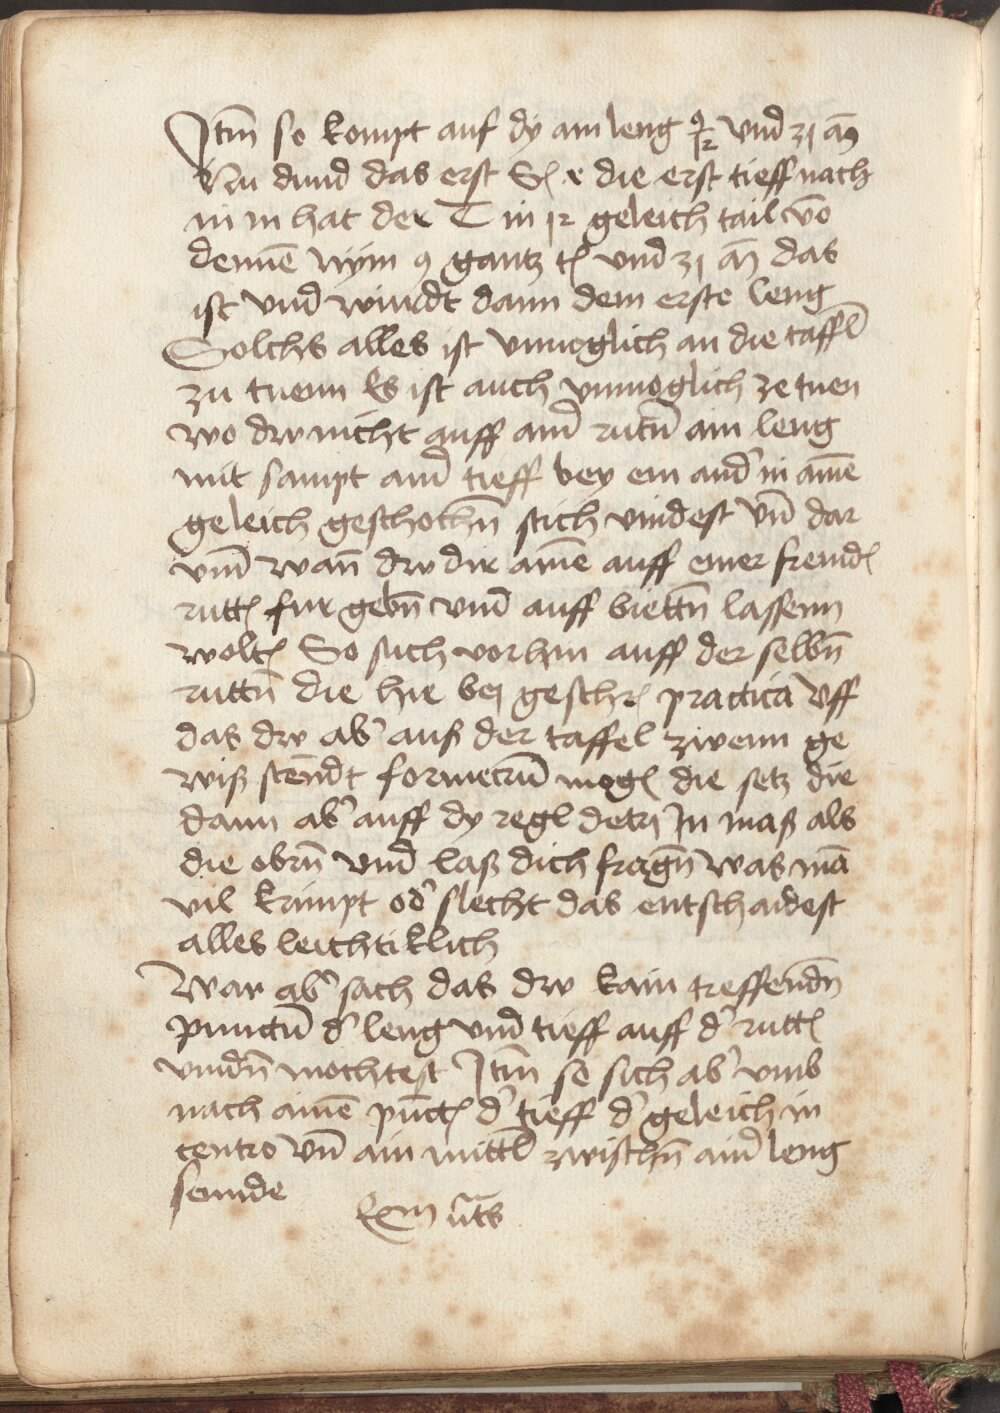 Itm̄ so kompt auf dy ain leng 9/12 vnd 31 am̄
Nu dund das erst die erst tieff nach
in in hat der T in 12 geleich tail vō
dennē nÿm 9 gantz vnd 31 am̄ das
ist vnd wiindt dann dem erste leng
Solchs alles ist vnmoglich an die taffl̄
zu tuenn Es ist auch vnmoglich ze tuen
wo drw nicht auff ainr̄ rutn̄ ain leng
mit sampt ainr̄ tieff bey ein and' in aine͞
geleich geschochn̄ stich vindest vn̄ dar
vm̄ wan̄ drw dir aine͞ auff einer fremd
rutt fur gebn̄ vnd auff biettn̄ lassenn
wolt So such vorhin auff der selbn̄
ruttn̄ die hie bej gesch practica vff
das drw ab' auß der taffel zwenn ge
wiß stēndt formern̄ mog die setz die
dann ab' auff dy regl detrj In maß als
die obrn̄ vnd laß dich fragn̄ was mā
vil krimpt od' slecht das entschaidest
alles leichtiklich
War ab' sach das drw kain treffendn̄
punctn̄ d' leng vnd tieff auff d' rutt
vindn̄ mochtest Itm̄ so sich ab' vmb
nach aine͞ pūct d' tieff d' geleich in
centro vn̄ ain mittl̄ zwischn̄ ainr̄ leng
seinde
Exm̄ ūts